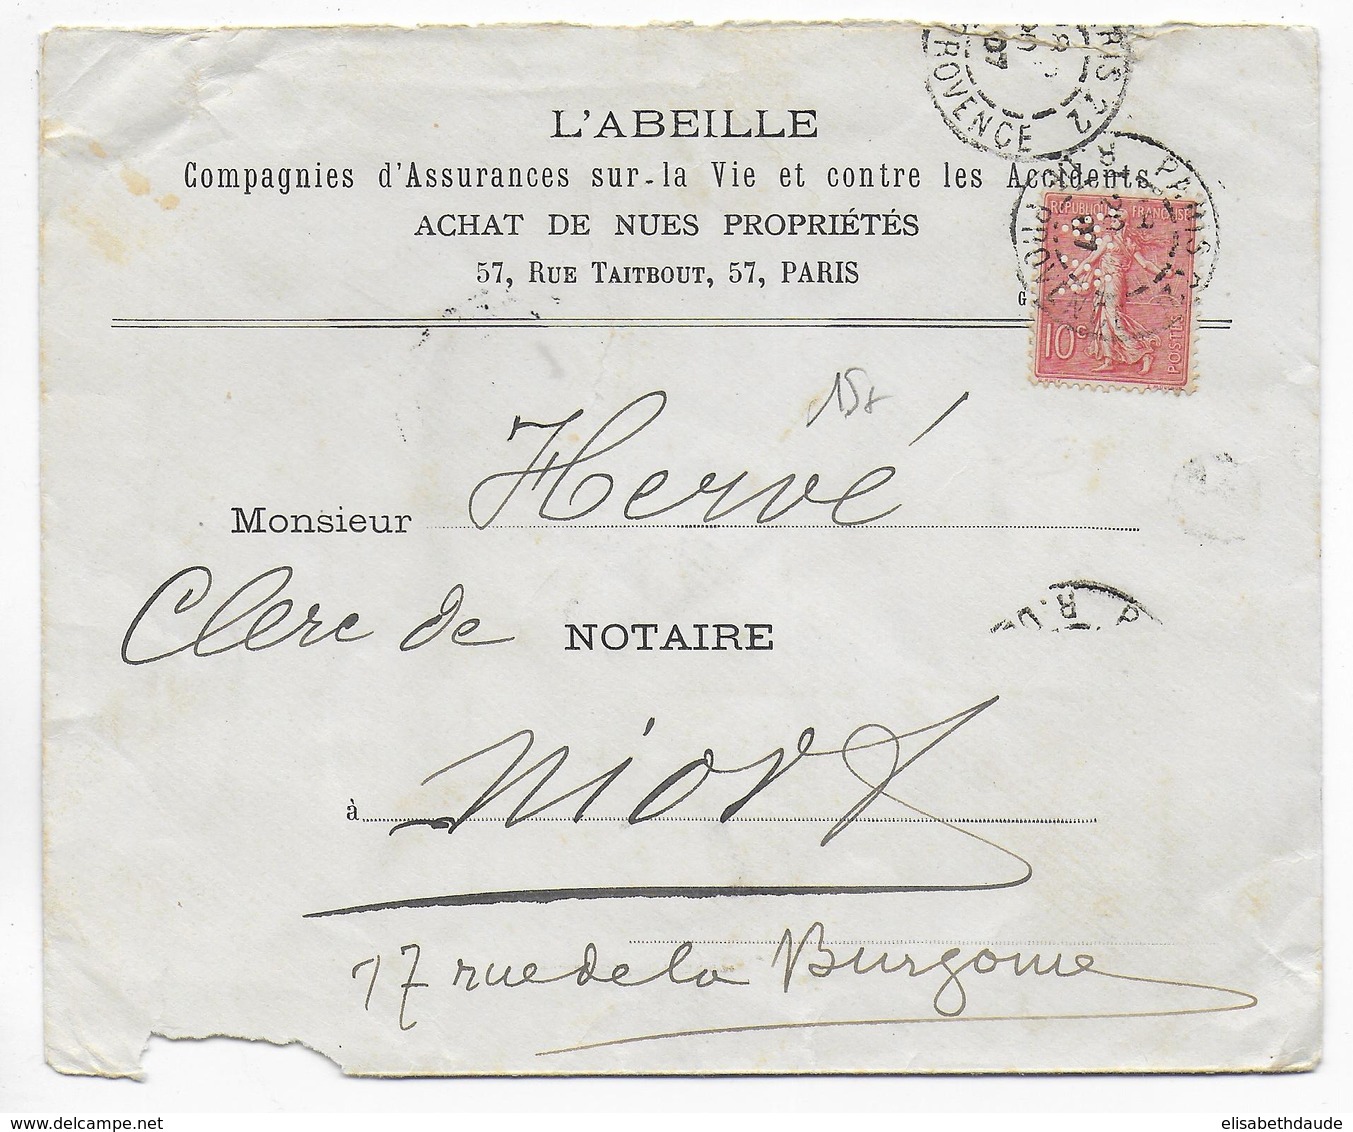 RIS 22
PROVENCE
07
L'ABEILLE
Compagnies d'Assurances sur la Vie et contre les Accidents
ACHAT DE NUES PROPRIÉTÉS
57, RUE TAITBOUT, 57, PARIS
G
PARIS
REPUBLIQUE FRANÇAISE
10c
POSTES
15x
Monsieur Hervé
Clerc de NOTAIRE
à Niort
17 rue de la Burgonie
www.delcampe.net
elisabethdaude